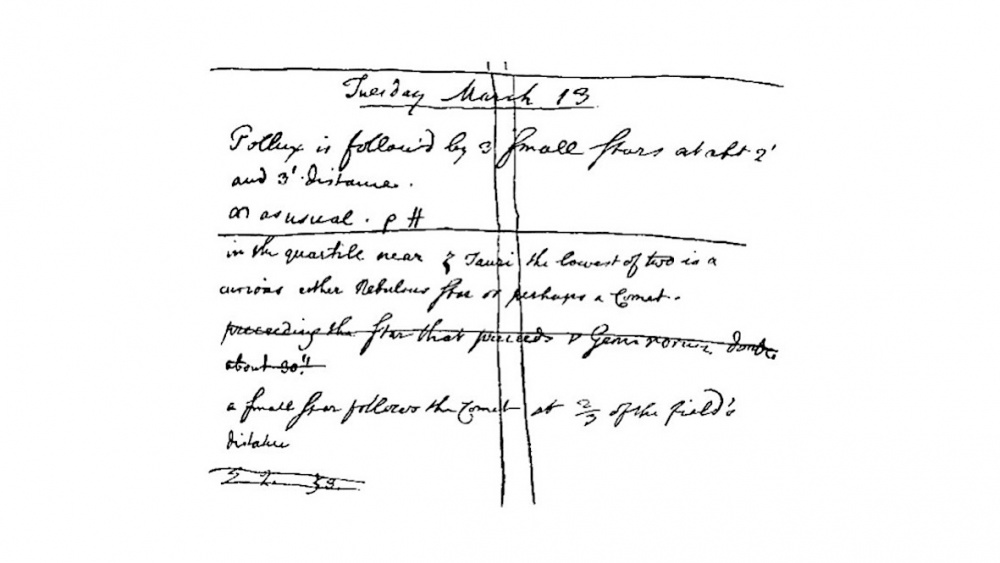 Tuesday March 13
Pollux is follow'd by 3 small stars at abt 2'
and 3' distance.
as usual. p #
in the quartile near ζ Tauri the lowest of two is a
curious either Nebulous star or perhaps a Comet.
preceeding the star that preceeds Geminorum double
about 30"
a small star follows the Comet at 2/3 of the field's
distance